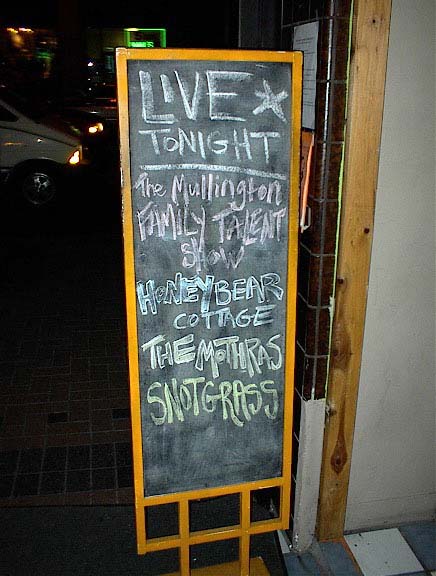 LIVE
TONIGHT
The Mullington
FAMILY TALENT
SHOW
HONEYBEAR
COTTAGE
THE MOTHRAS
SNOTGRASS